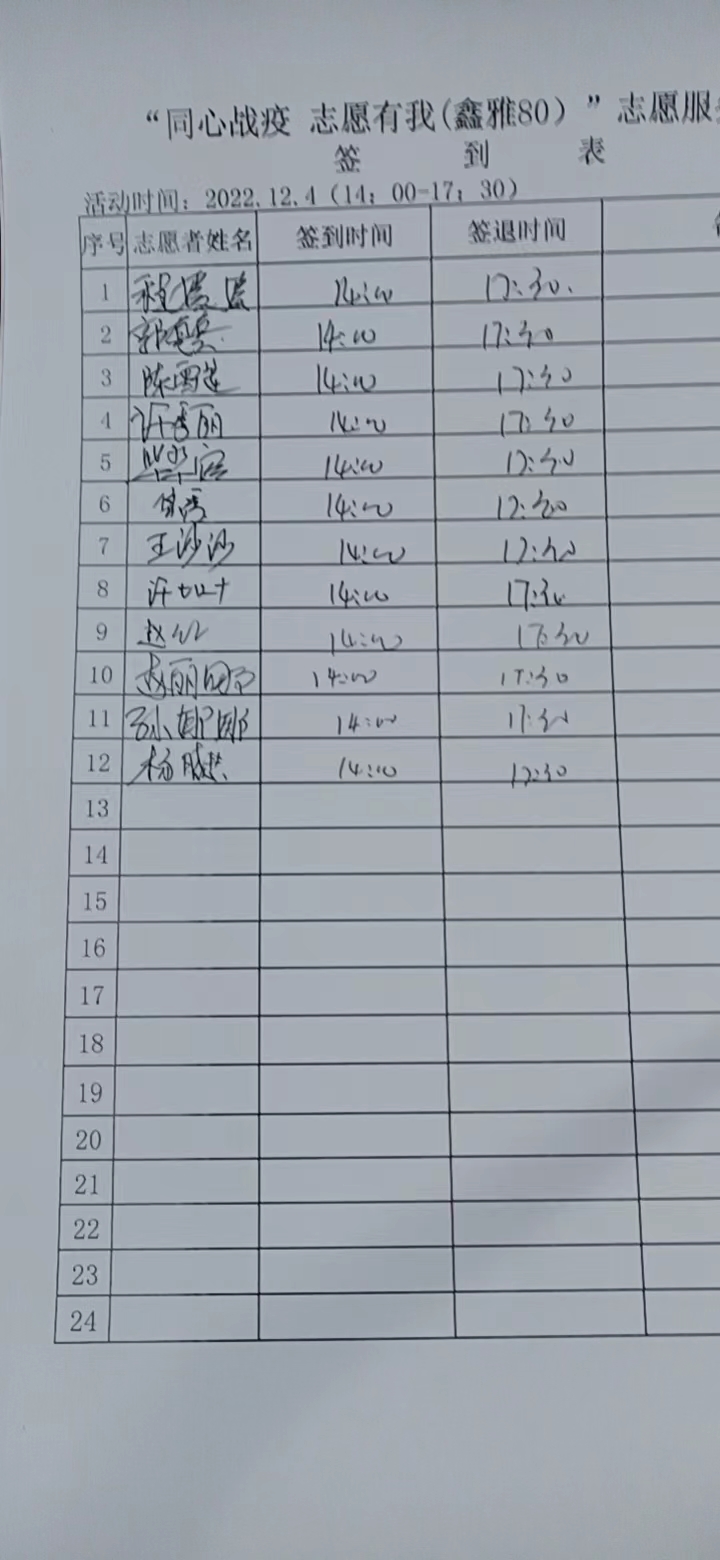 “同心战疫 志愿有我(鑫雅80)”志愿服
签 到 表
活动时间：2022.12.4（14：00-17：30）
序号 志愿者姓名 签到时间 签退时间
1 14:00 17:30.
2 14:00 17:30
3 14:00 17:30
4 许秀丽 14:00 17:30
5 14:00 17:30
6 14:00 17:30
7 王沙沙 14:00 17:30
8 14:00 17:30
9 14:00 17:30
10 14:00 17:30
11 孙娜娜 14:00 17:30
12 14:00 17:30
13
14
15
16
17
18
19
20
21
22
23
24